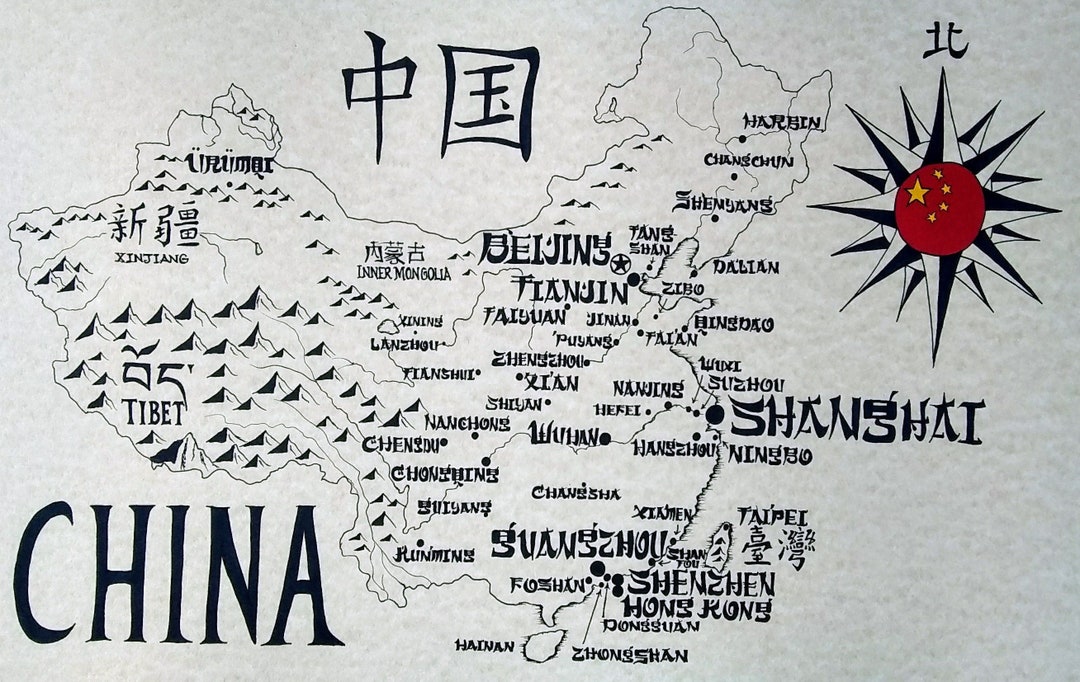 中国
北
HARBIN
CHANGCHUN
ÜRÜMQI
SHENYANG
新疆
XINJIANG
内蒙古
INNER MONGOLIA
BEIJING
TANG
SHAN
DALIAN
TIANJIN
ZIBO
TAIYUAN
JINAN
QINGDAO
XINING
TAI'AN
LANZHOU
PUYANG
ZHENGZHOU
WUXI
TIANSHUI
XI'AN
NANJING
SUZHOU
བོད་
TIBET
SHIYAN
HEFEI
SHANGHAI
NANCHONG
WUHAN
CHENGDU
HANGZHOU
NINGBO
CHONGQING
CHANGSHA
GUIYANG
XIAMEN
TAIPEI
臺灣
CHINA
KUNMING
GUANGZHOU
SHAN
TOU
FOSHAN
SHENZHEN
HONG KONG
DONGGUAN
HAINAN
ZHONGSHAN